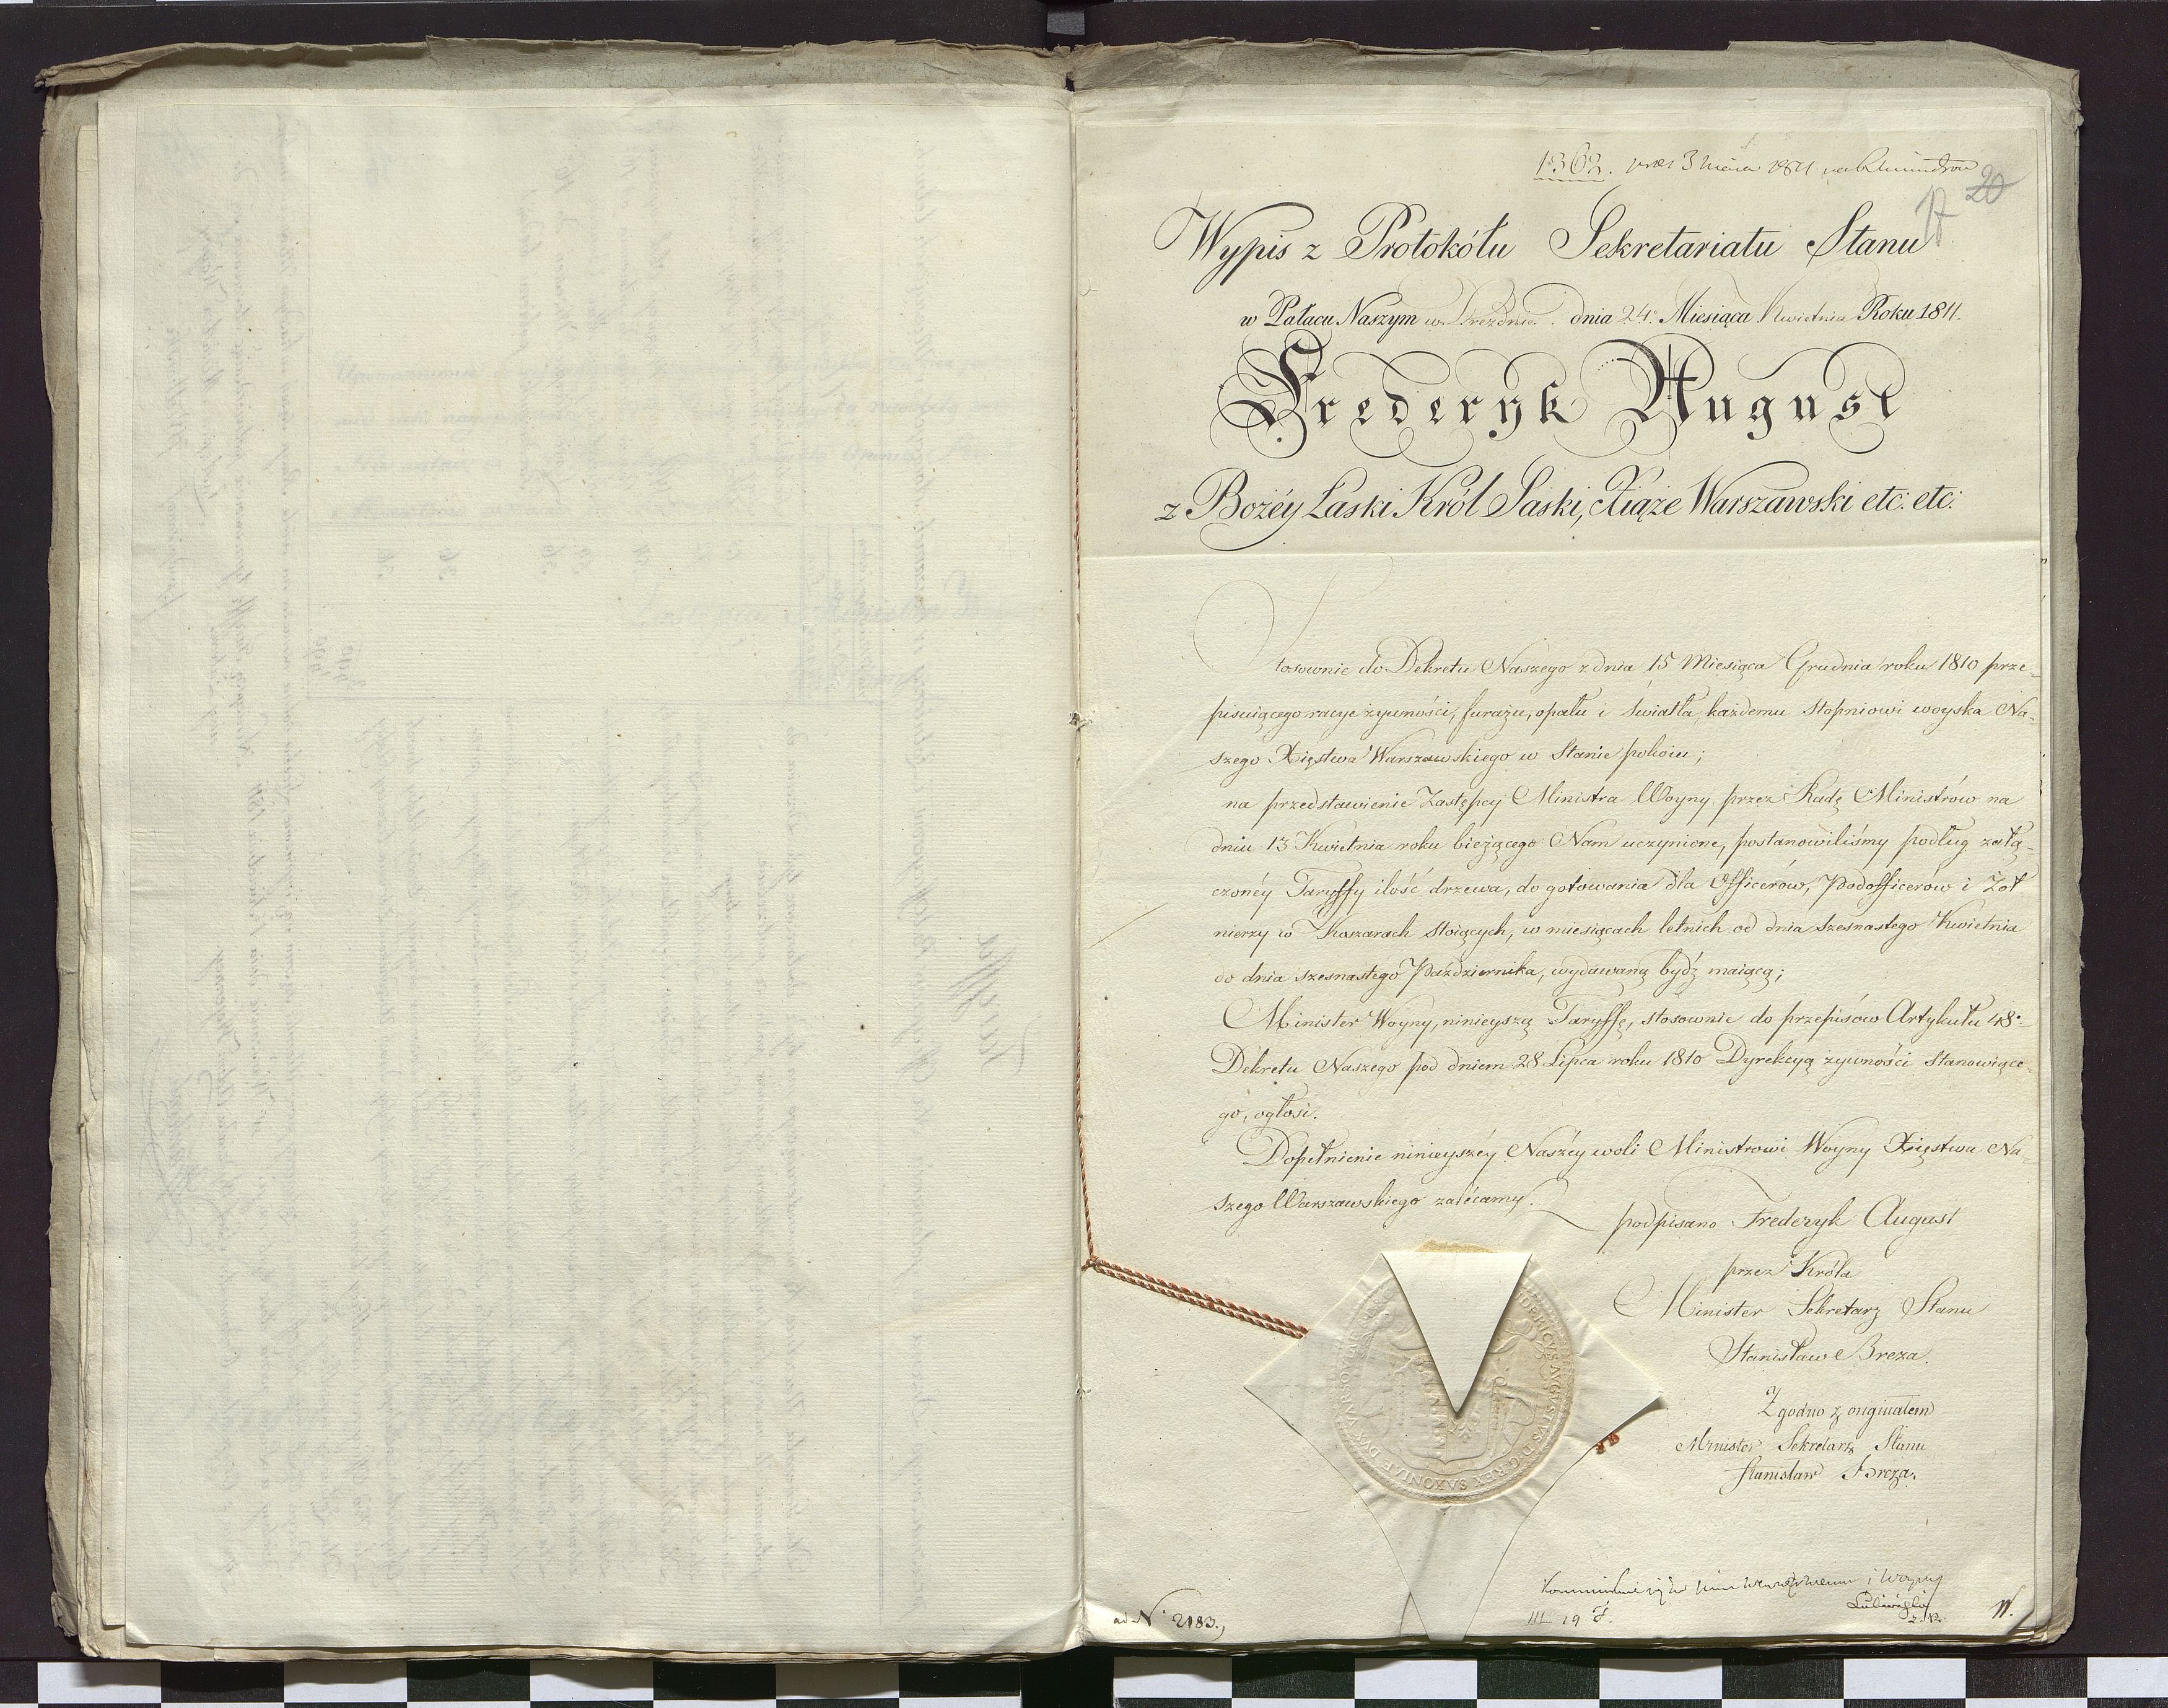 1363. 3 1811
20
Wypis z Protokółu Sekretariatu Stanu
w Pałacu Naszym w Dreźnie dnia 24. Miesiąca Kwietnia Roku 1811.
Frederyk August
z Bożéy Łaski Król Saski, Xiąże Warszawski etc: etc:
Stosownie do Dekretu Naszego z dnia 15 Miesiąca Grudnia roku 1810 prze-
pisuiącego racye żywności, furażu, opału i światła, każdemu Stopniowi woyska Na-
szego Xięstwa Warszawskiego w Stanie pokoiu;
na przedstawienie Zastępcy Ministra Woyny przez Radę Ministrów na
dniu 13 Kwietnia roku bieżącego Nam uczynione, postanowiliśmy podług załą-
czonéy Taryffy ilość drzewa, do gotowania dla Officerów, Podofficerów i Żoł
nierzy w Koszarach stoiących, w miesiącach letnich od dnia szesnastego Kwietnia
do dnia szesnastego Października, wydawaną bydź maiącą;
Minister Woyny, ninieyszą Taryffę, stosownie do przepisów Artykułu 48.
Dekretu Naszego pod dniem 28 Lipca roku 1810 Dyrekcyą żywności Stanowiące-
go, ogłosi.
Dopełnienie ninieyszéy Naszéy woli Ministrowi Woyny Xięstwa Na-
szego Warszawskiego zalécamy.
podpisano Frederyk August
przez Króla
Minister Sekretarz Stanu
Stanisław Breza.
FRIDERICVS AVGVSTVS D. G. REX SAXONIAE DVX VARSOVIAE
Zgodno z originałem
Minister Sekretarz Stanu
Stanisław Breza.
i Woyny
ad N. 2183.